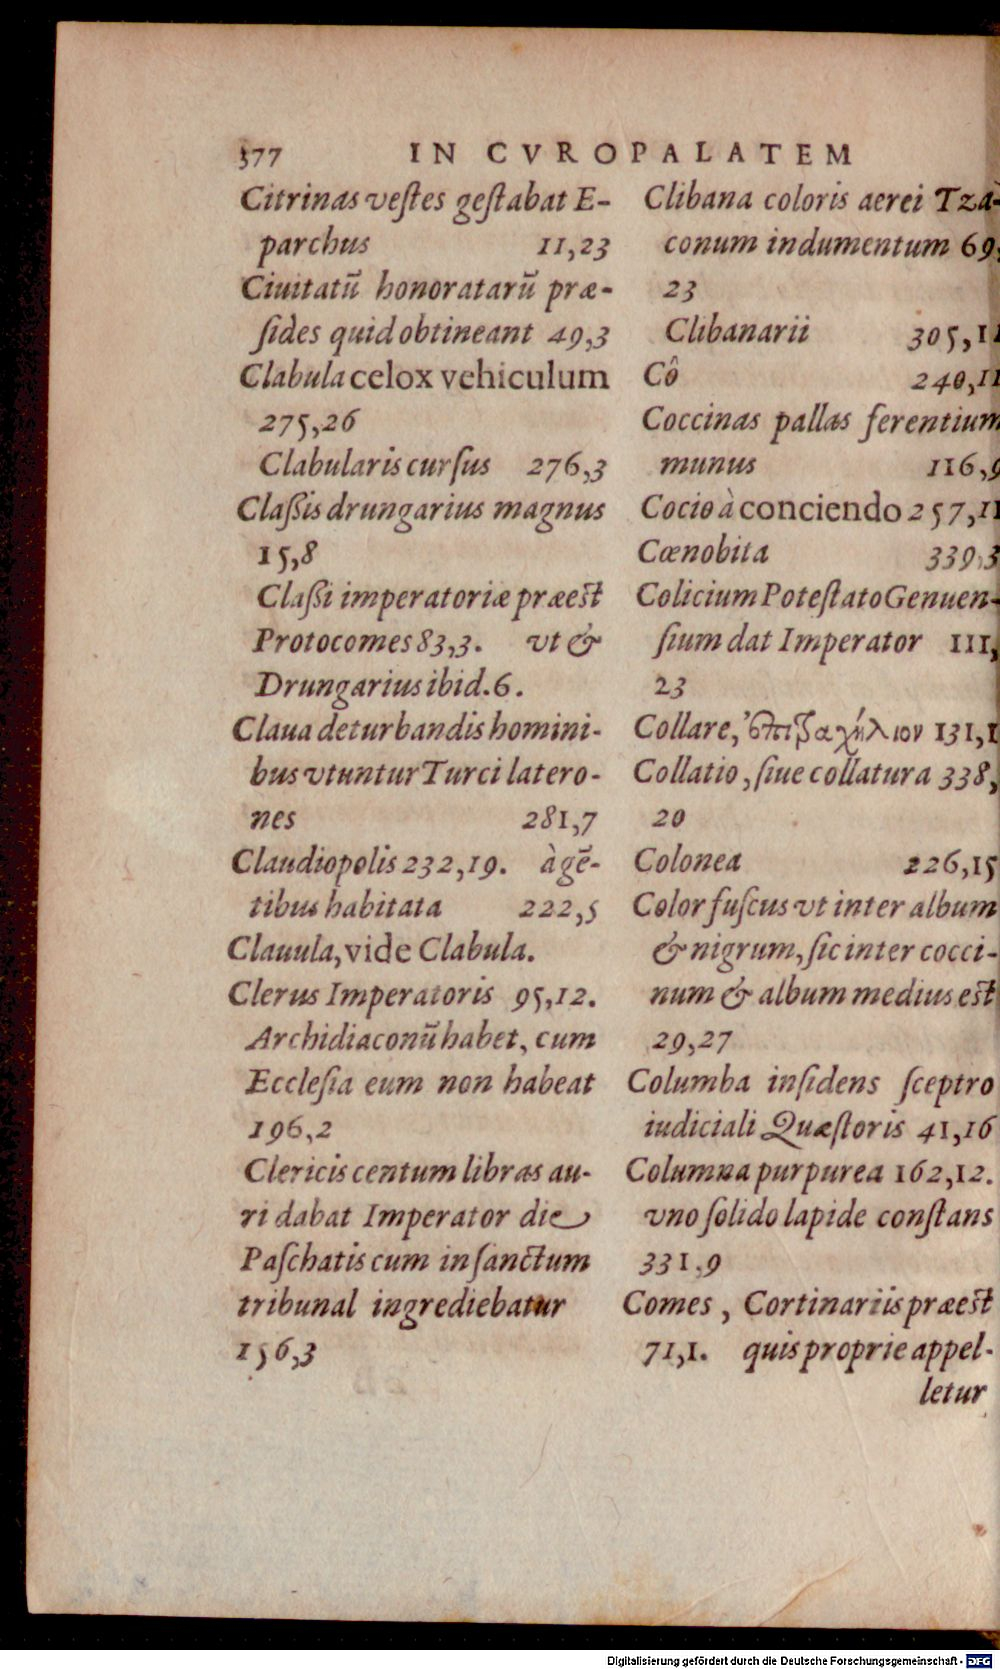 377 IN CVROPALATEM
Citrinas veſtes geſtabat E-
parchus 11,23
Ciuitatū honoratarū præ-
ſides quid obtineant 49,3
Clabula celox vehiculum
275,26
Clabularis curſus 276,3
Claßis drungarius magnus
15,8
Claßi imperatoriæ præest
Protocomes 83,3. vt &
Drungarius ibid.6.
Claua deturbandis homini-
bus vtuntur Turci latero-
nes 281,7
Claudiopolis 232,19. à gē-
tibus habitata 222,5
Clauula, vide Clabula.
Clerus Imperatoris 95,12.
Archidiaconū habet, cum
Eccleſia eum non habeat
196,2
Clericis centum libras au-
ri dabat Imperator die
Paſchatis cum in ſanctum
tribunal ingrediebatur
156,3
Clibana coloris aerei Tza-
conum indumentum 69,
23
Clibanarii 305,11
Cô 240,11
Coccinas pallas ferentium
munus 116,9
Cocio à conciendo 257,11
Cœnobita 339,3
Colicium Poteſtato Genuen-
ſium dat Imperator 111,
23
Collare, ἐπιτραχήλιον 131,1
Collatio, ſiue collatura 338,
20
Colonea 226,15
Color fuſcus vt inter album
& nigrum, ſic inter cocci-
num & album medius est
29,27
Columba inſidens ſceptro
iudiciali Quæſtoris 41,16
Columna purpurea 162,12.
vno ſolido lapide conſtans
331,9
Comes, Cortinariis præest
71,1. quis proprie appel-
letur
Digitalisierung gefördert durch die Deutsche Forschungsgemeinschaft - DFG